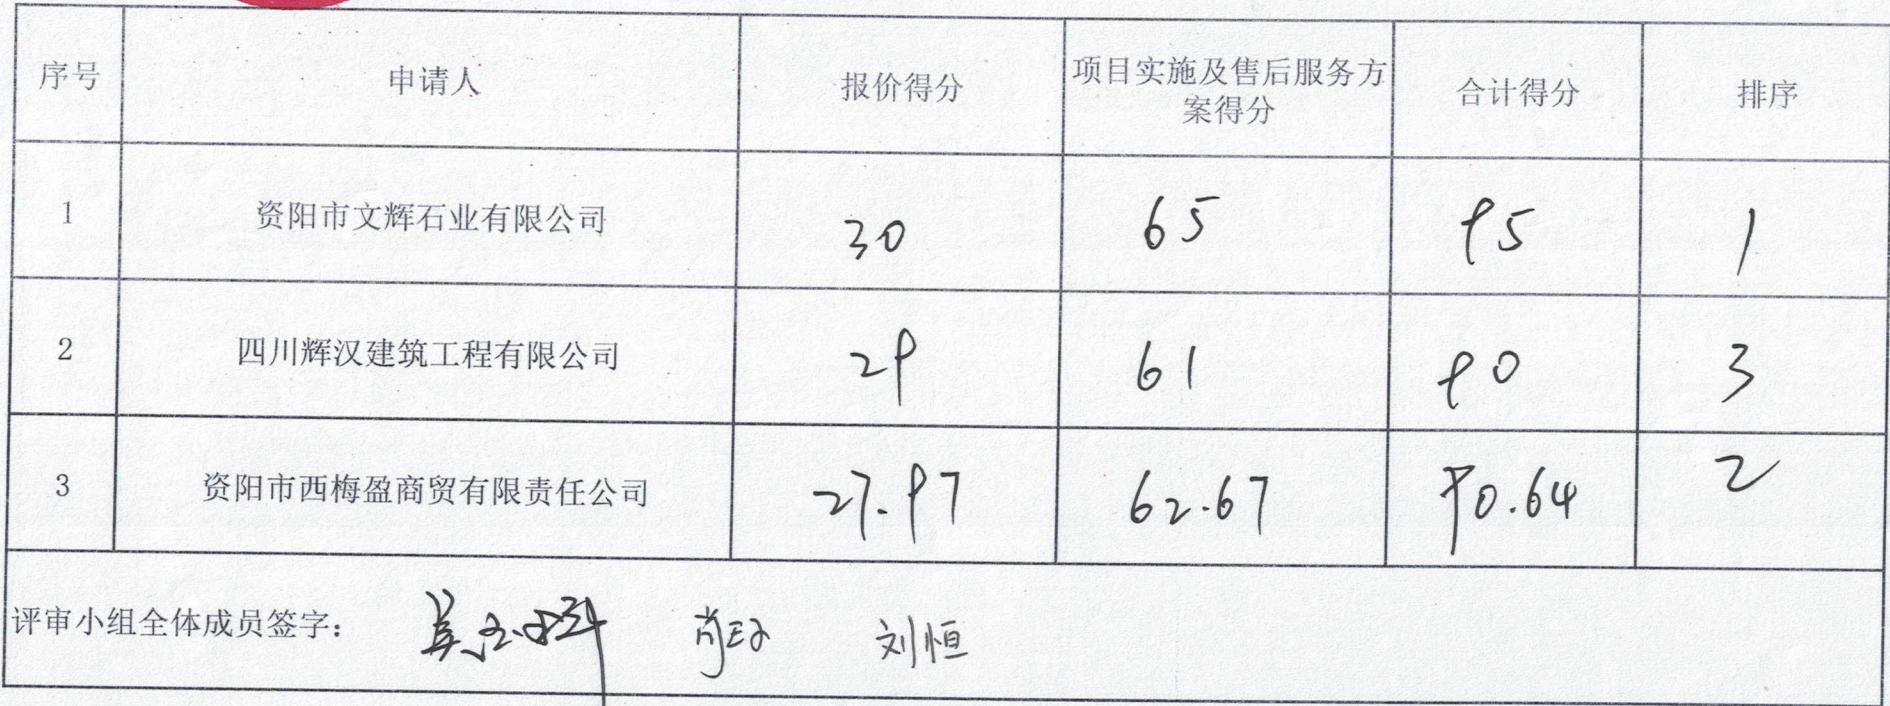 序号 申请人 报价得分 项目实施及售后服务方案得分 合计得分 排序
1 资阳市文辉石业有限公司 30 65 95 1
2 四川辉汉建筑工程有限公司 29 61 90 3
3 资阳市西梅盈商贸有限责任公司 27.97 62.67 90.64 2
评审小组全体成员签字： 刘恒